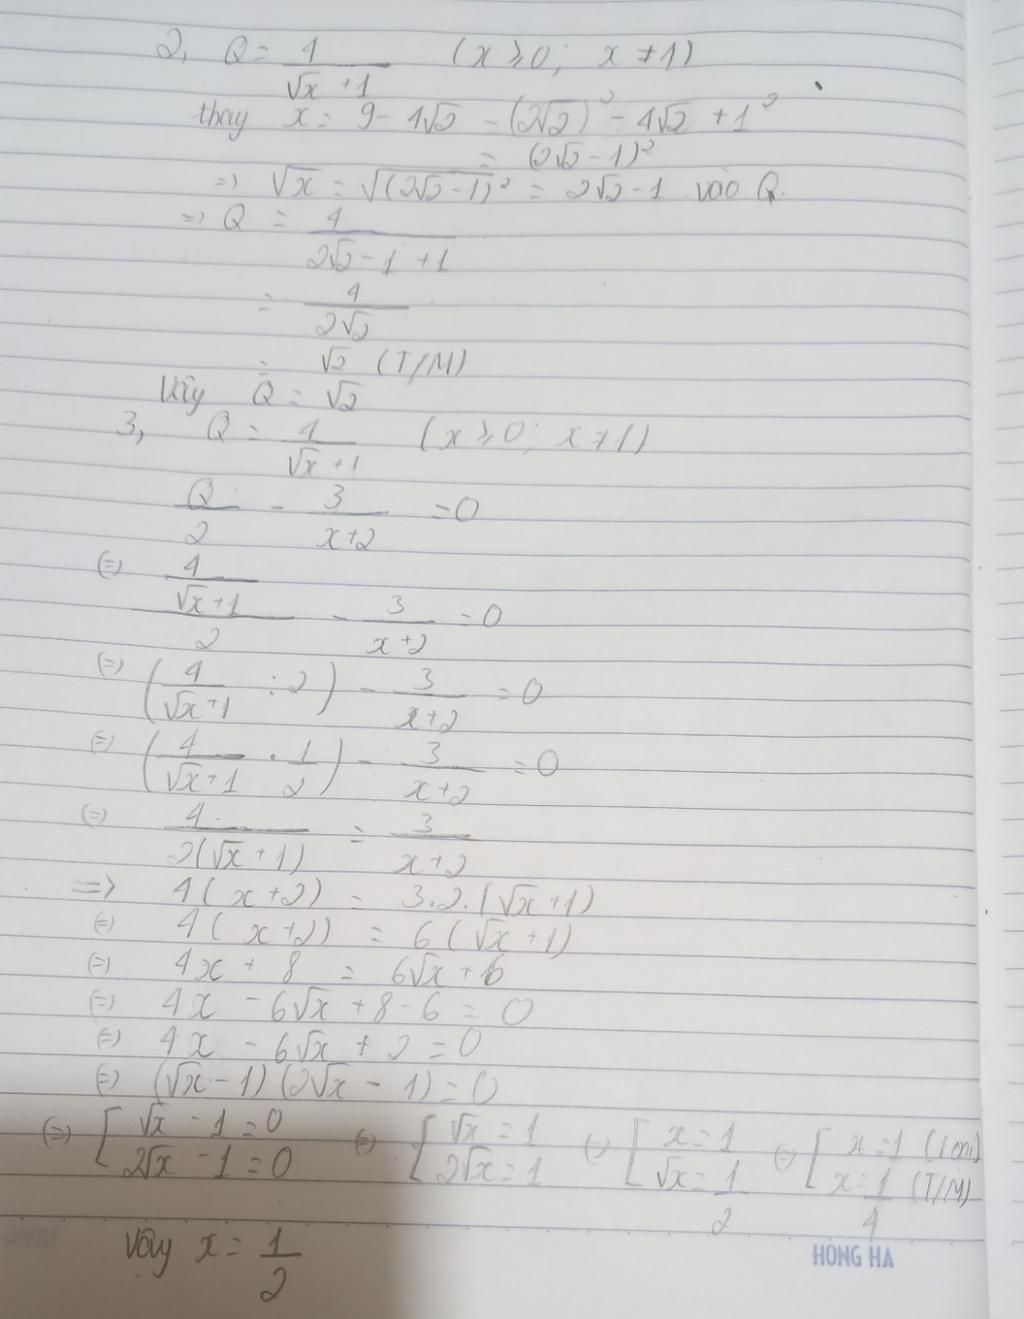 2, Q = 4/(√x + 1) (x ≥ 0; x ≠ 1)
thay x = 9 - 4√2 = (2√2)² - 4√2 + 1²
= (2√2 - 1)²
=> √x = √(2√2-1)² = 2√2-1 vào Q.
=> Q = 4/(2√2 - 1 + 1)
= 4/(2√2)
= √2 (T/M)
Vậy Q = √2
3, Q = 4/(√x + 1) (x ≥ 0; x ≠ 1)
Q/2 - 3/(x+2) = 0
(=) (4/(√x+1))/2 - 3/(x+2) = 0
(=) (4/(√x+1) : 2) - 3/(x+2) = 0
(=) (4/(√x+1) · 1/2) - 3/(x+2) = 0
(=) 4/(2(√x+1)) = 3/(x+2)
=> 4(x+2) = 3.2.(√x+1)
(=) 4(x+2) = 6(√x+1)
(=) 4x + 8 = 6√x + 6
(=) 4x - 6√x + 8 - 6 = 0
(=) 4x - 6√x + 2 = 0
(=) (√x-1)(2√x-1) = 0
(=) [ √x - 1 = 0 (=) [ √x = 1 (=) [ x = 1 (=) [ x = 1 (Loại)
2√x - 1 = 0 2√x = 1 √x = 1/2 x = 1/4 (T/M)
Vậy x = 1/2
HONG HA